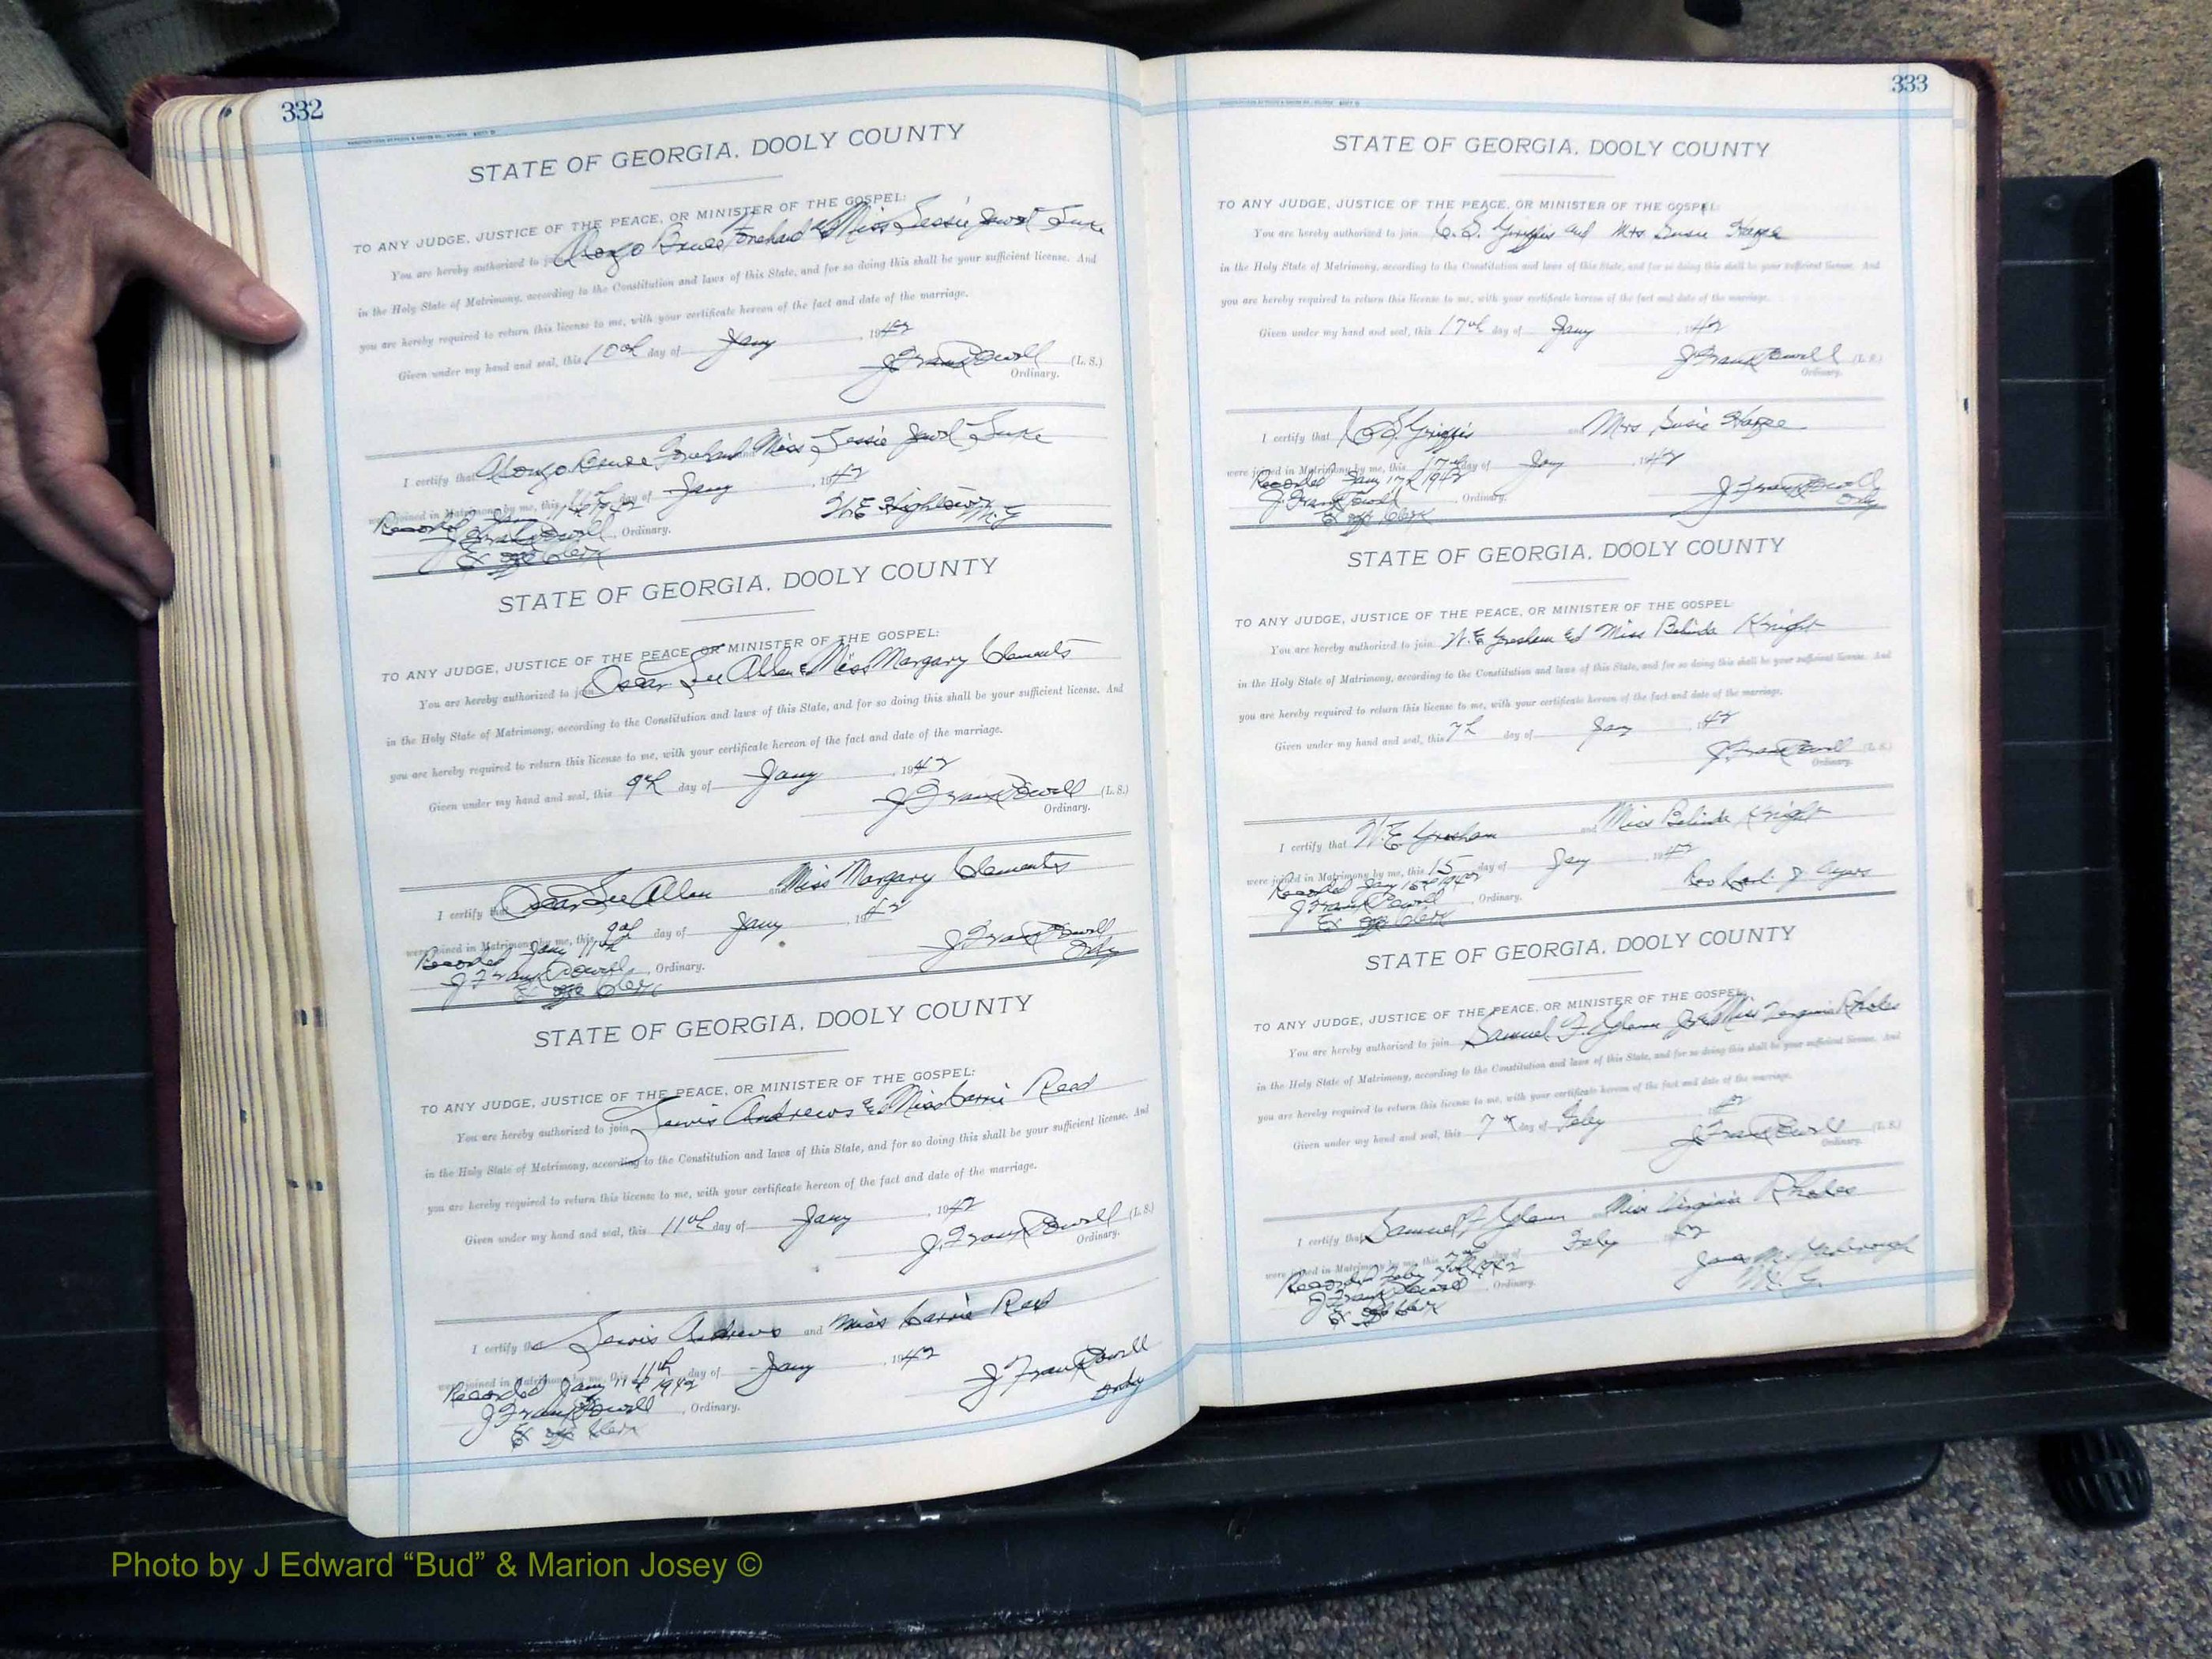 332
STATE OF GEORGIA, DOOLY COUNTY
TO ANY JUDGE, JUSTICE OF THE PEACE, OR MINISTER OF THE GOSPEL:
You are hereby authorized to join Alonzo Bruce Forehand & Miss Jessie Jewel
in the Holy State of Matrimony, according to the Constitution and laws of this State, and for so doing this shall be your sufficient license. And
you are hereby required to return this license to me, with your certificate hereon of the fact and date of the marriage.
Given under my hand and seal, this 10th day of Jany, 1942
J Frank Powell (L. S.)
Ordinary.
I certify that Alonzo Bruce Forehand Miss Jessie Jewel
were joined in Matrimony by me, this day of Jany, 1942
Recorded
J Frank Powell, Ordinary.
Ex off Clerk
STATE OF GEORGIA, DOOLY COUNTY
TO ANY JUDGE, JUSTICE OF THE PEACE, OR MINISTER OF THE GOSPEL:
You are hereby authorized to join Oscar Lee Allen & Miss Margary Clements
in the Holy State of Matrimony, according to the Constitution and laws of this State, and for so doing this shall be your sufficient license. And
you are hereby required to return this license to me, with your certificate hereon of the fact and date of the marriage.
Given under my hand and seal, this 9th day of Jany, 1942
J Frank Powell (L. S.)
Ordinary.
I certify that Oscar Lee Allen and Miss Margary Clements
were joined in Matrimony by me, this 9th day of Jany, 1942
J Frank Powell
Ordy
Recorded Jany 11th
J Frank Powell, Ordinary.
Ex off Clerk
STATE OF GEORGIA, DOOLY COUNTY
TO ANY JUDGE, JUSTICE OF THE PEACE, OR MINISTER OF THE GOSPEL:
You are hereby authorized to join Lewis Andrews & Miss Carrie Reed
in the Holy State of Matrimony, according to the Constitution and laws of this State, and for so doing this shall be your sufficient license. And
you are hereby required to return this license to me, with your certificate hereon of the fact and date of the marriage.
Given under my hand and seal, this 11th day of Jany, 1942
J. Frank Powell (L. S.)
Ordinary.
I certify that Lewis Andrews and Miss Carrie Reed
were joined in Matrimony by me, this 11th day of Jany, 1942
J Frank Powell
Ordy
Recorded Jany 11th 1942
J Frank Powell, Ordinary.
Ex off Clerk
333
STATE OF GEORGIA, DOOLY COUNTY
TO ANY JUDGE, JUSTICE OF THE PEACE, OR MINISTER OF THE GOSPEL:
You are hereby authorized to join C. S. Griffis and Mrs Susie
in the Holy State of Matrimony, according to the Constitution and laws of this State, and for so doing this shall be your sufficient license. And
you are hereby required to return this license to me, with your certificate hereon of the fact and date of the marriage.
Given under my hand and seal, this 17th day of Jany, 1942
J Frank Powell (L. S.)
Ordinary.
I certify that C S Griffis and Mrs Susie
were joined in Matrimony by me, this 17th day of Jany, 1942
J Frank Powell
Ordy
Recorded Jany 17th 1942
J. Frank Powell, Ordinary.
Ex off Clerk
STATE OF GEORGIA, DOOLY COUNTY
TO ANY JUDGE, JUSTICE OF THE PEACE, OR MINISTER OF THE GOSPEL:
You are hereby authorized to join W. E Gresham Miss Belinda Knight
in the Holy State of Matrimony, according to the Constitution and laws of this State, and for so doing this shall be your sufficient license. And
you are hereby required to return this license to me, with your certificate hereon of the fact and date of the marriage.
Given under my hand and seal, this 7th day of Jany, 1942
J. Frank Powell (L. S.)
Ordinary.
I certify that W. E Gresham and Miss Belinda Knight
were joined in Matrimony by me, this 15 day of Jany, 1942
Recorded Jany 15th 1942
J Frank Powell, Ordinary.
Ex off Clerk
STATE OF GEORGIA, DOOLY COUNTY
TO ANY JUDGE, JUSTICE OF THE PEACE, OR MINISTER OF THE GOSPEL:
You are hereby authorized to join Samuel F. Glenn Jr & Miss Virginia Rhodes
in the Holy State of Matrimony, according to the Constitution and laws of this State, and for so doing this shall be your sufficient license. And
you are hereby required to return this license to me, with your certificate hereon of the fact and date of the marriage.
Given under my hand and seal, this 7th day of Feby, 1942
J Frank Powell (L. S.)
Ordinary.
I certify that Samuel F Glenn Miss Virginia Rhodes
were joined in Matrimony by me, this 7th day of Feby 42
Recorded Feby 7th 1942
J Frank Powell, Ordinary.
Ex off Clerk
M. G.
Photo by J Edward “Bud” & Marion Josey ©